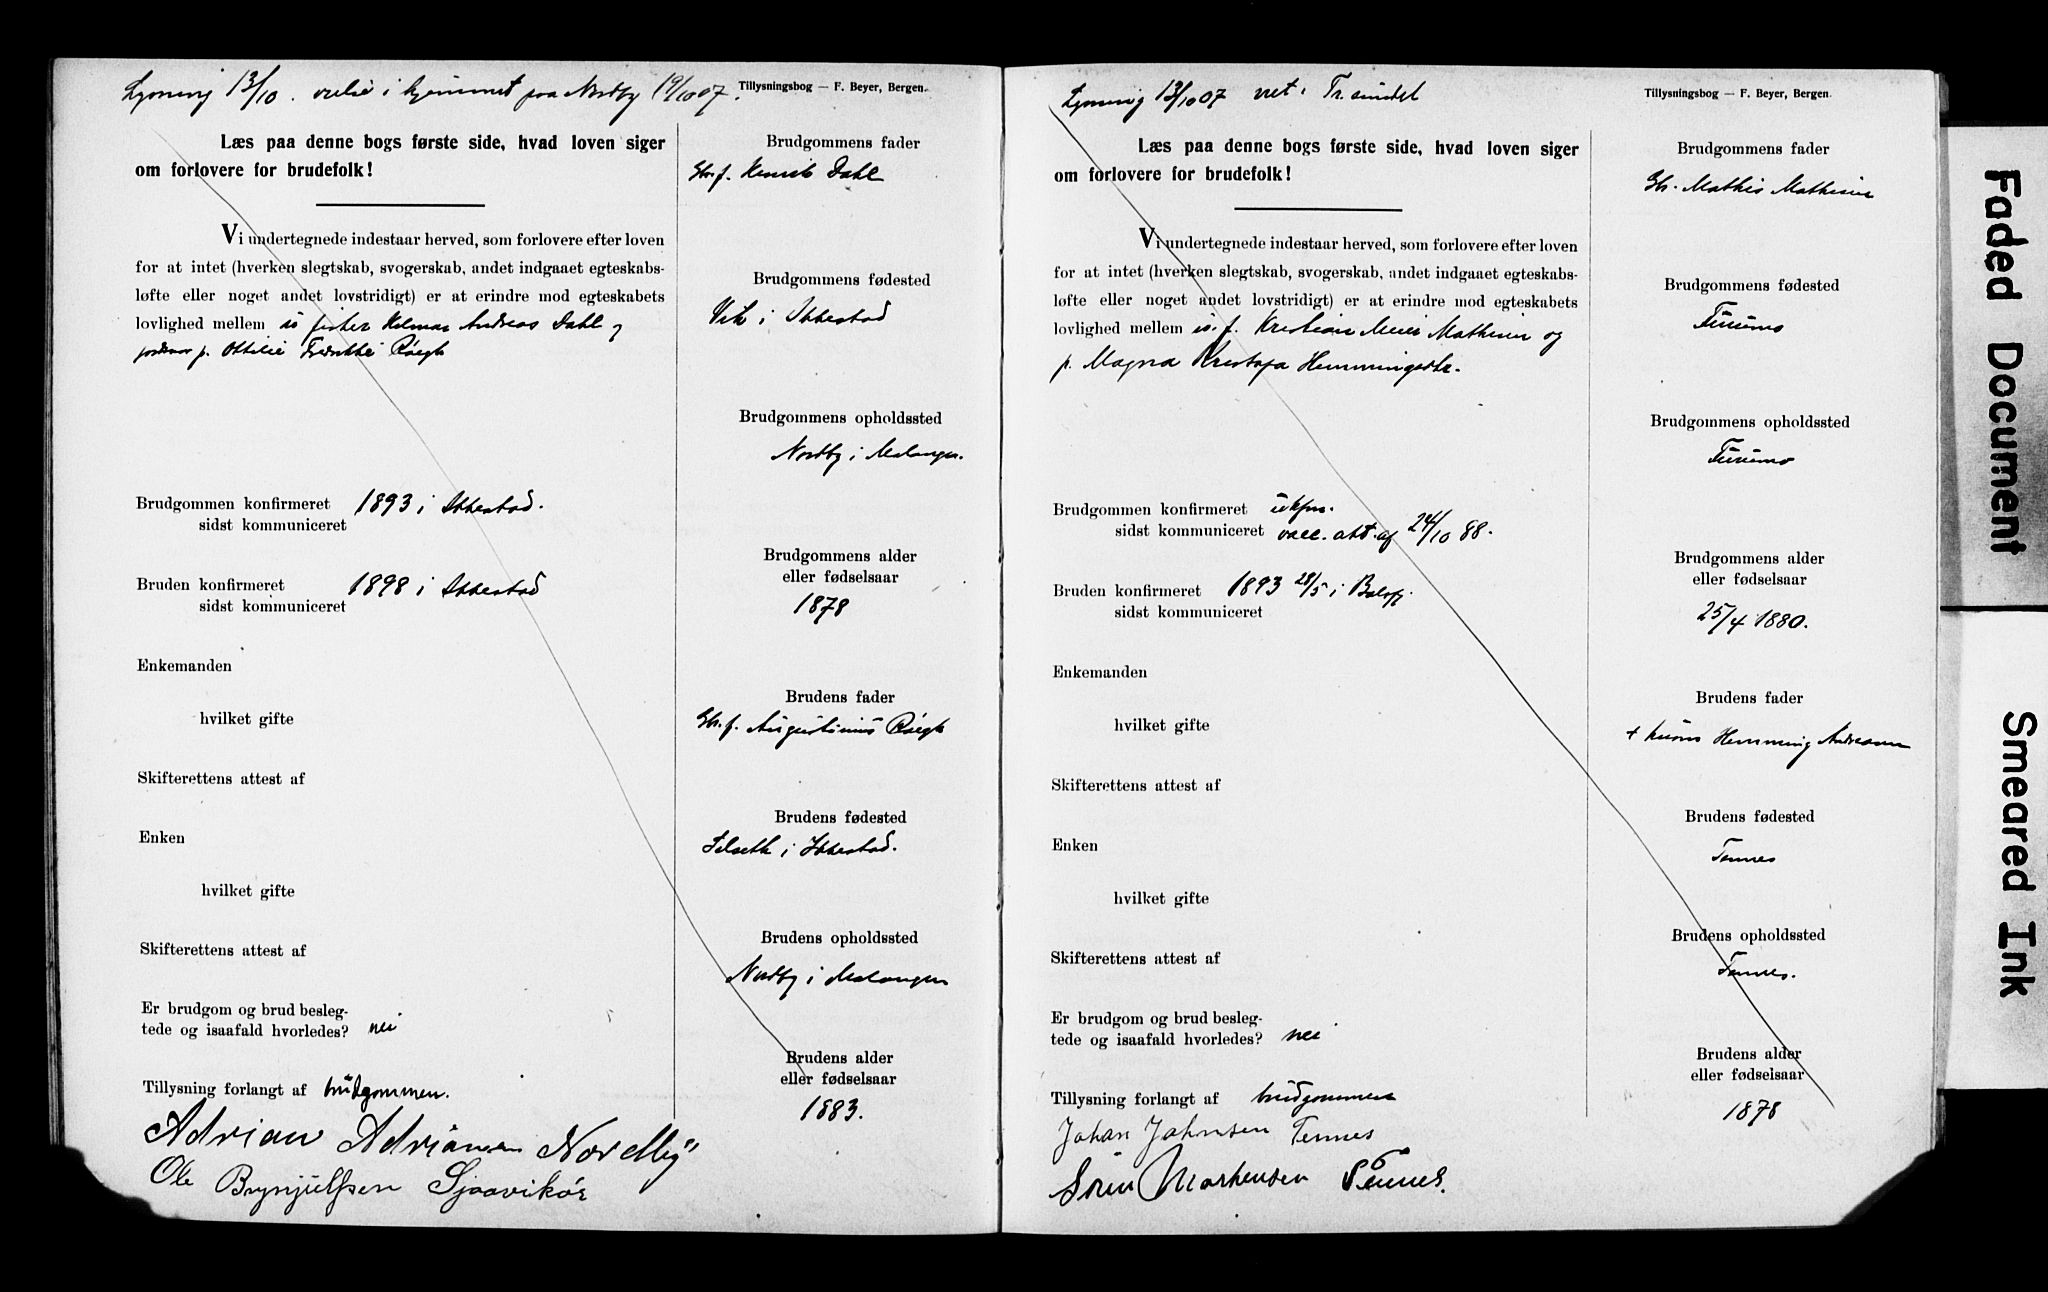 Lysning 13/10. viet i hjemmet paa Nordby 19/10 07.
Tillysningsbog — F. Beyer, Bergen.
Læs paa denne bogs første side, hvad loven siger
om forlovere for brudefolk!
Vi undertegnede indestaar herved, som forlovere efter loven
for at intet (hverken slegtskab, svogerskab, andet indgaaet egteskabs-
løfte eller noget andet lovstridigt) er at erindre mod egteskabets
lovlighed mellem u. fisker Hilmar Andreas Dahl og
p. Ottilie Fredrikke Røegh
Brudgommen konfirmeret 1893 i Ibbestad.
sidst kommuniceret
Bruden konfirmeret 1898 i Ibbestad
sidst kommuniceret
Enkemanden
hvilket gifte
Skifterettens attest af
Enken
hvilket gifte
Skifterettens attest af
Er brudgom og brud besleg-
tede og isaafald hvorledes? nei
Tillysning forlangt af brudgommen.
Adrian Adriansen Nordby
Ole Brynjulfsen Sjaavikør
Brudgommens fader
Gbr. f. Henrik Dahl
Brudgommens fødested
Vik i Ibbestad
Brudgommens opholdssted
Nordby i Malangen.
Brudgommens alder
eller fødselsaar
1878
Brudens fader
Gbr. f. Augustinus Røegh
Brudens fødested
Selseth i Ibbestad.
Brudens opholdssted
Nordby i Malangen
Brudens alder
eller fødselsaar
1883.
Lysning 13/10 07 viet i Tr.sundet
Tillysningsbog — F. Beyer, Bergen.
Læs paa denne bogs første side, hvad loven siger
om forlovere for brudefolk!
Vi undertegnede indestaar herved, som forlovere efter loven
for at intet (hverken slegtskab, svogerskab, andet indgaaet egteskabs-
løfte eller noget andet lovstridigt) er at erindre mod egteskabets
lovlighed mellem u. f. Kristian Meier Mathisen og
p. Magna Kristofa Hemmingsdtr.
Brudgommen konfirmeret ukfm.
sidst kommuniceret vacc. att. af 24/10 88.
Bruden konfirmeret 1893 28/5 i Balsfj.
sidst kommuniceret
Enkemanden
hvilket gifte
Skifterettens attest af
Enken
hvilket gifte
Skifterettens attest af
Er brudgom og brud besleg-
tede og isaafald hvorledes? nei
Tillysning forlangt af brudgommen
Johan Johnsen Tennes
Sørin Mortensen Tennes.
Brudgommens fader
Gb. Mathis Mathisen
Brudgommens fødested
Furumo
Brudgommens opholdssted
Furumo
Brudgommens alder
eller fødselsaar
25/4 1880.
Brudens fader
Hemming Andreasen
Brudens fødested
Tennes
Brudens opholdssted
Tennes.
Brudens alder
eller fødselsaar
1878
Faded Document
Smeared Ink